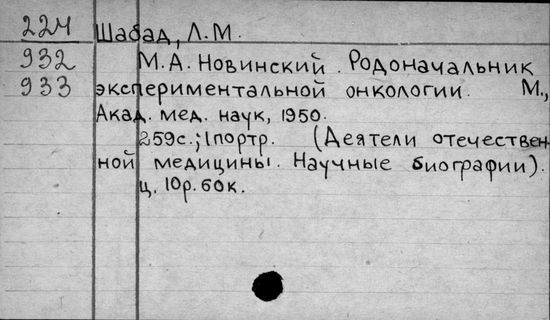 224 Шабад, Л.М.
932 М.А. Новинский. Родоначальник
933 экспериментальной онкологии. М.,
Акад. мед. наук, 1950.
259с.; 1портр. (Деятели отечествен-
ной медицины. Научные биографии).
ц. 10р. 60к.